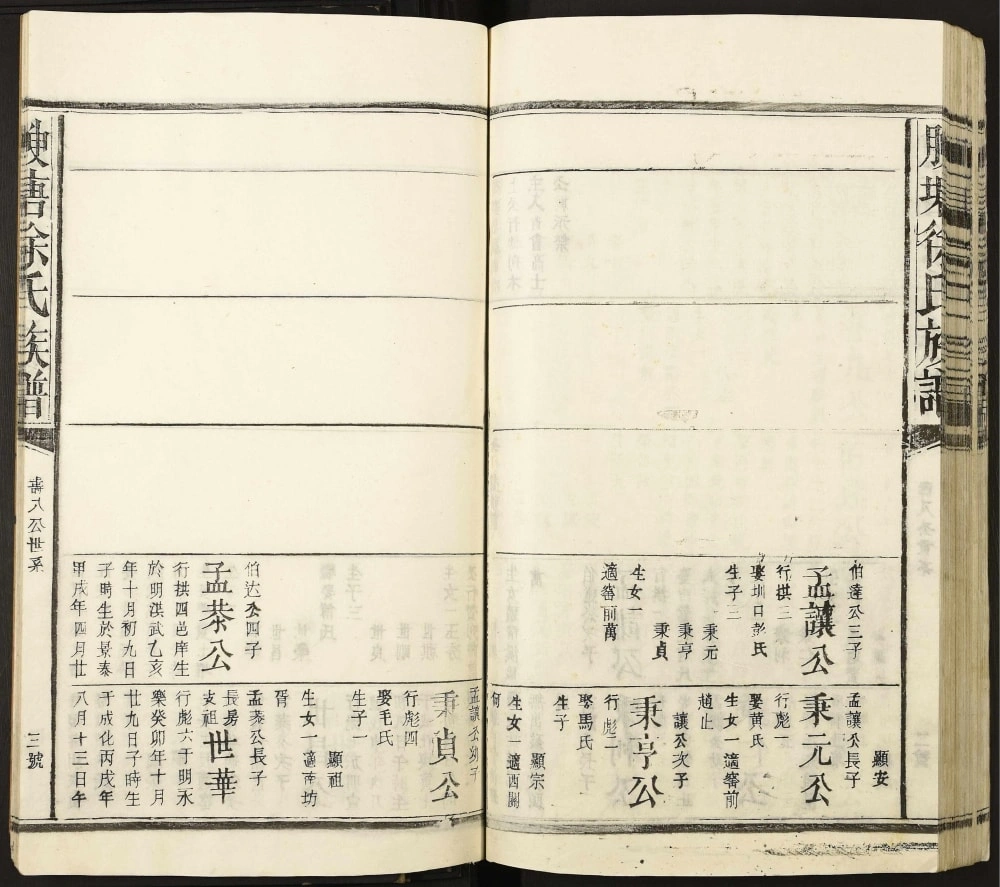 徐氏族譜
伯達公三子
孟讓公
行拱三
娶圳口彭氏
生子三
秉元
秉亨
秉貞
生女一
適審前萬
顯安
孟讓公長子
秉元公
行彪一
娶黃氏
生女一適審前
趙止
讓公次子
秉亨公
行彪二
娶馬氏
生子
顯宗
生女一適西關
何
孟讓公幼子
秉貞公
行彪四
娶毛氏
生子一
顯祖
生女一適南坊
胥
伯达公四子
孟恭公
行拱四邑庠生
於明洪武乙亥
年十月初九日
子時生於景泰
甲戌年四月廿
孟恭公長子
長房
支祖世華
行彪六于明永
樂癸卯年十月
廿九日子時生
于成化丙戌年
八月十三日午
徐氏族譜
八公世系
三號